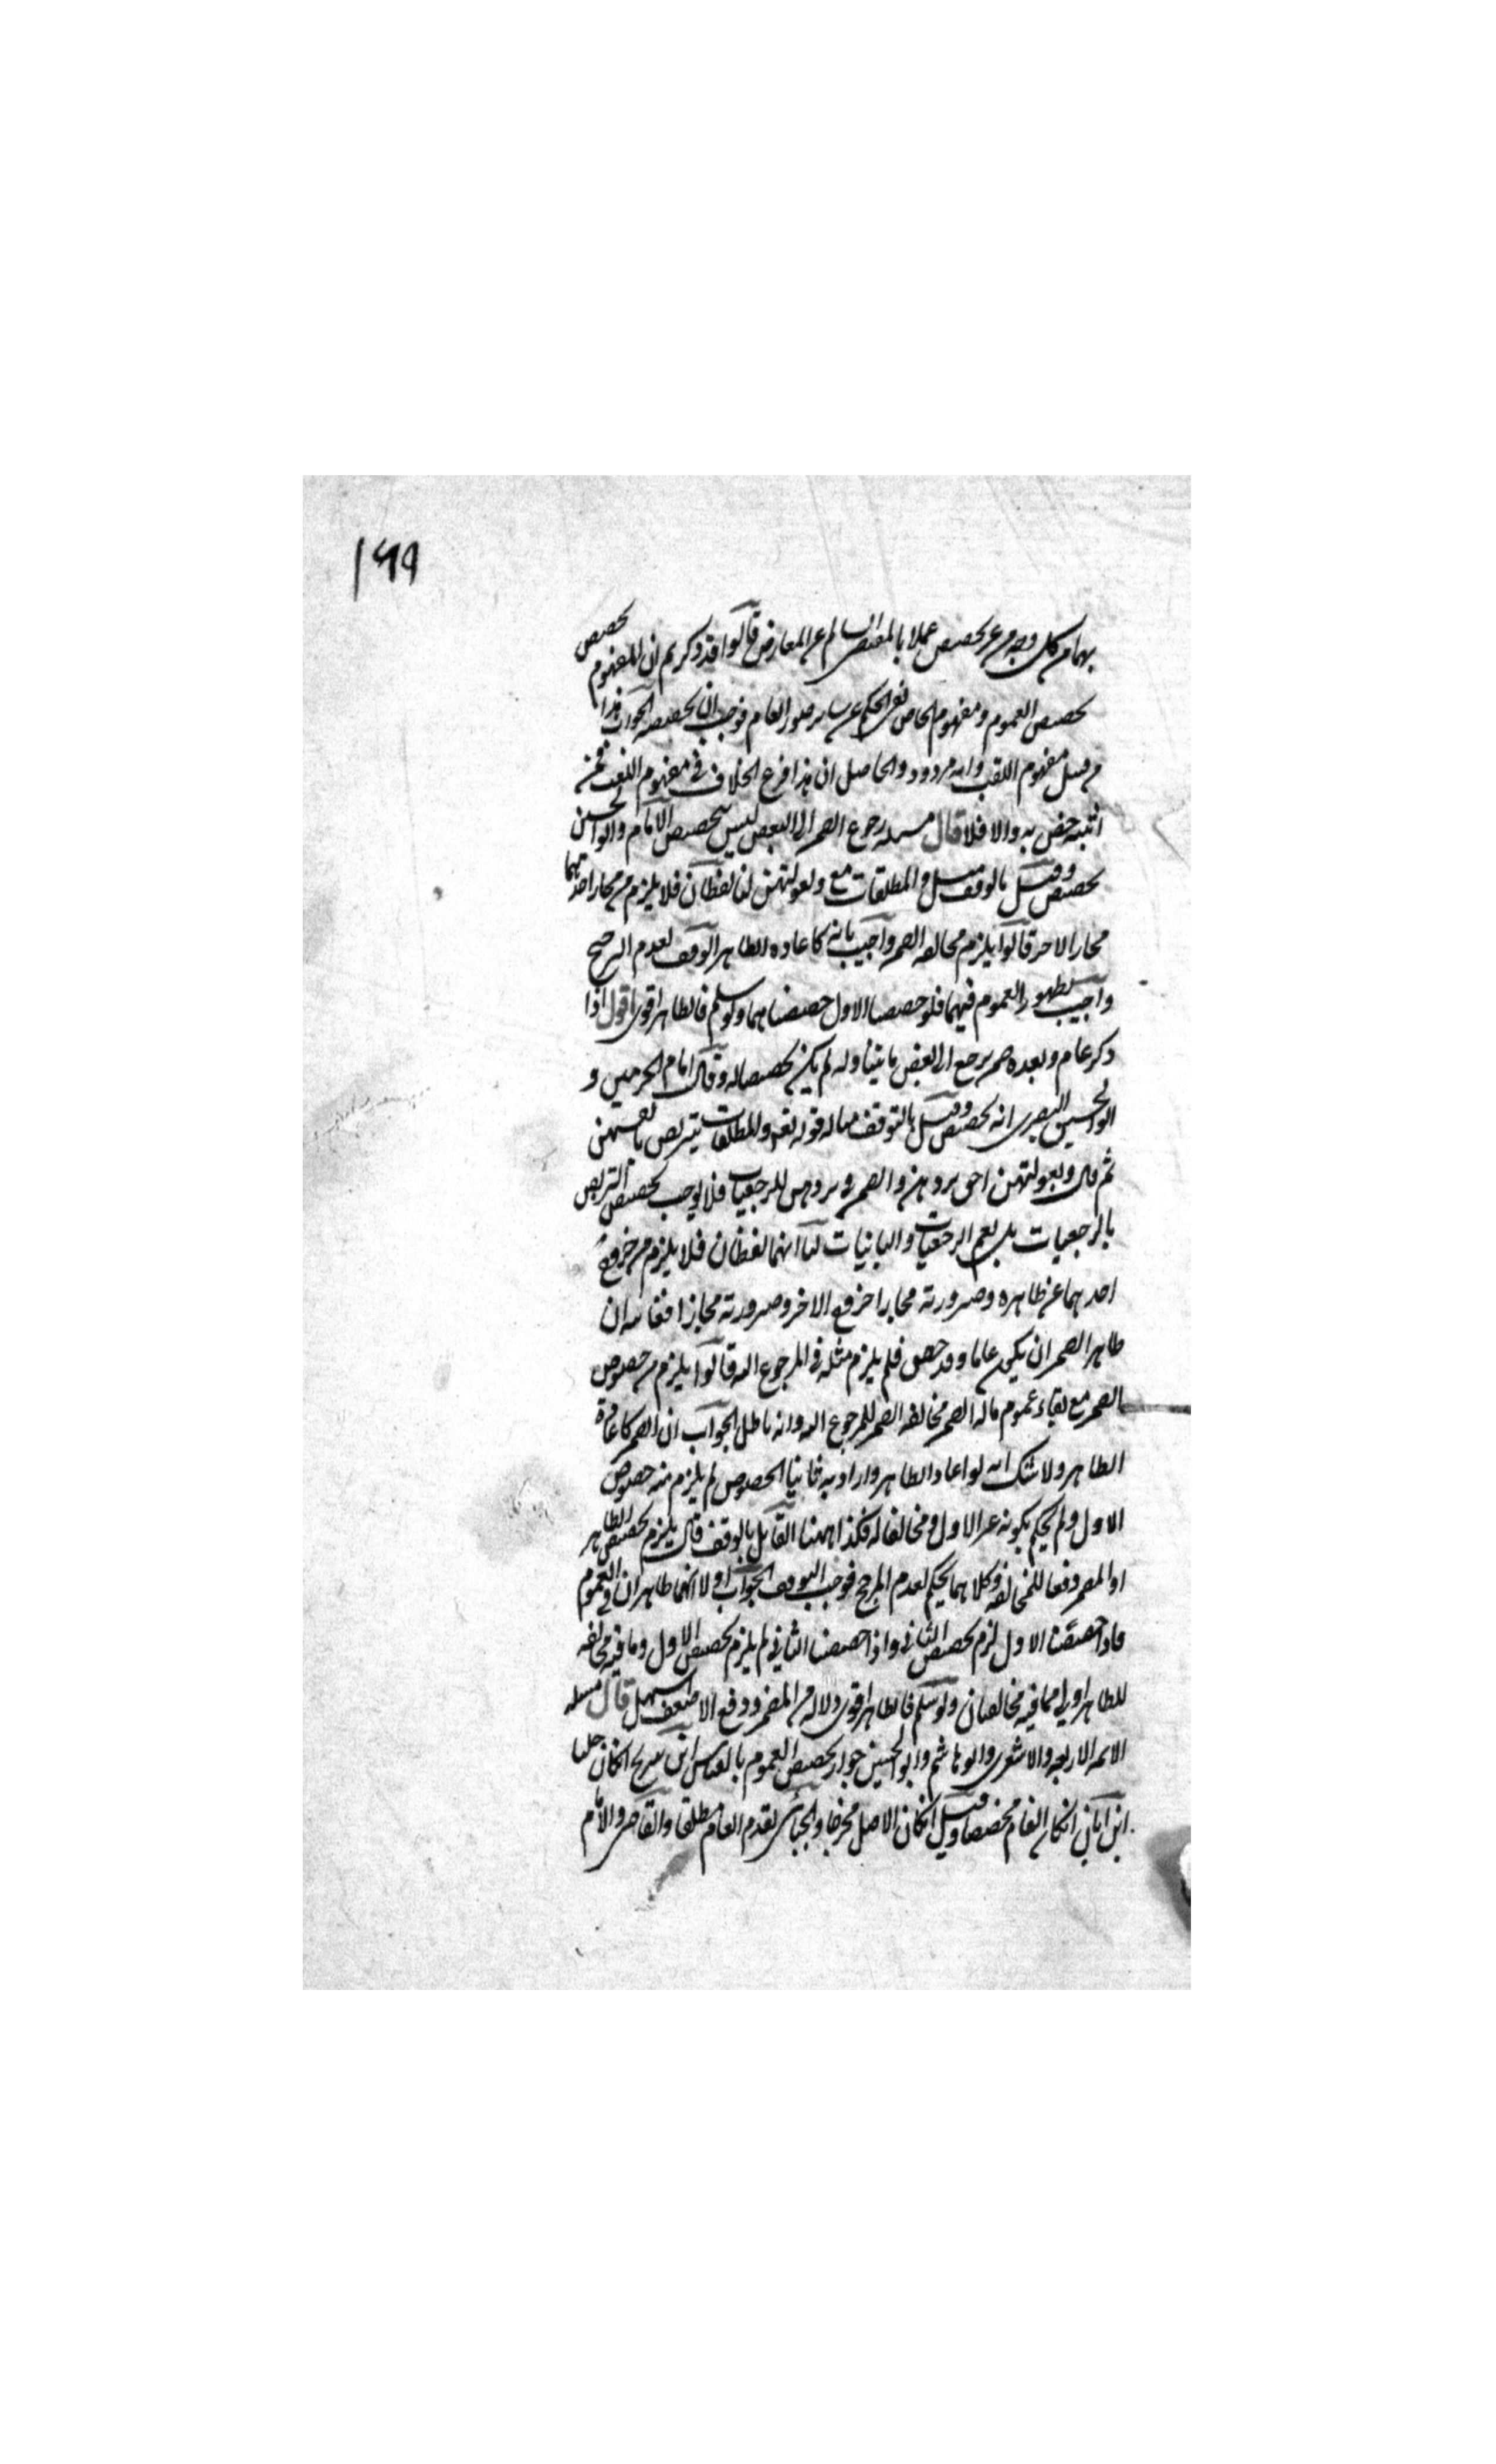 ١٩٩
بهما من كل وجه من غير تخصيص عملا بالمقتضى السالم عن المعارض قالوا قد ذكرتم ان المفهوم تخصيص
تخصيص العموم ومفهوم الخاص نفى الحكم عن ساير صور العام فوجب ان تخصيصه الجواب هذا
من قبيل مفهوم اللقب وانه مردود والحاصل ان هذا فرع الخلاف في مفهوم اللقب فمن
اثبته خص به والا فلا قال مسله رجوع الضمير الى البعض ليس بتخصيص الامام وابو الحسين
تخصيص وقيل بالوقف مثل والمطلقات مع وبعولتهن لنا لفظان فلا يلزم من مجاز احدهما
مجاز الاخر قالوا يلزم مخالفه الضمير واجيب بانه كاعاده الظاهر الوقف لعدم الترجيح
واجيب بظهور العموم فيهما فلو خصصنا الاول خصصناهما ولو سلم فالظاهر اقوى اقول اذا
ذكر عام وبعده ضمير يرجع الى بعض ما يتناوله لم يكن تخصيصا له وقال امام الحرمين و
ابو الحسين البصرى انه تخصيص وقيل بالتوقف مثاله قوله تعالى والمطلقات يتربصن بانفسهن
ثم قال وبعولتهن احق بردهن والضمير في بردهن للرجعيات فلا يوجب تخصيص التربص
بالرجعيات بل يعم الرجعيات والباينات لنا انهما لفظان فلا يلزم من خروج
احدهما عن ظاهره وصيرورته مجازا خروج الاخر وصيرورته مجازا فغايته ان
ظاهر الضمير ان يكون عاما وقد خص فلم يلزم مثله في المرجوع اليه قالوا يلزم من خصوص
الضمير مع بقاء عموم ماله الضمير مخالفه الضمير للمرجوع اليه وانه باطل الجواب ان الضمير كاعادة
الظاهر ولا شك انه لو اعاد الظاهر واراد به ثانيا الخصوص لم يلزم منه خصوص
الاول ولم يحكم بكونه غير الاول ومخالفا له فكذا ههنا القايل بالوقف قال يلزم تخصيص الظاهر
او المضمر دفعا للمخالفه وكلاهما تحكم لعدم المرجح فوجب التوقف الجواب اولا انهما ظاهران في العموم
فاذا خصصنا الاول لزم تخصيص الثاني واذا خصصنا الثاني لم يلزم تخصيص الاول وما فيه مخالفه
للظاهر اولى مما فيه مخالفتان ولو سلم فالظاهر اقوى دلاله من المضمر ودفع الاضعف اسهل قال مسله
الايمه الاربعه والاشعرى وابو هاشم وابو الحسين جواز تخصيص العموم بالقياس ابن سريج ان كان جليا
ابن ابان ان كان العام مخصصا وقيل ان كان الاصل مخرجا والجبائى يقدم العام مطلقا والقاضى والامام